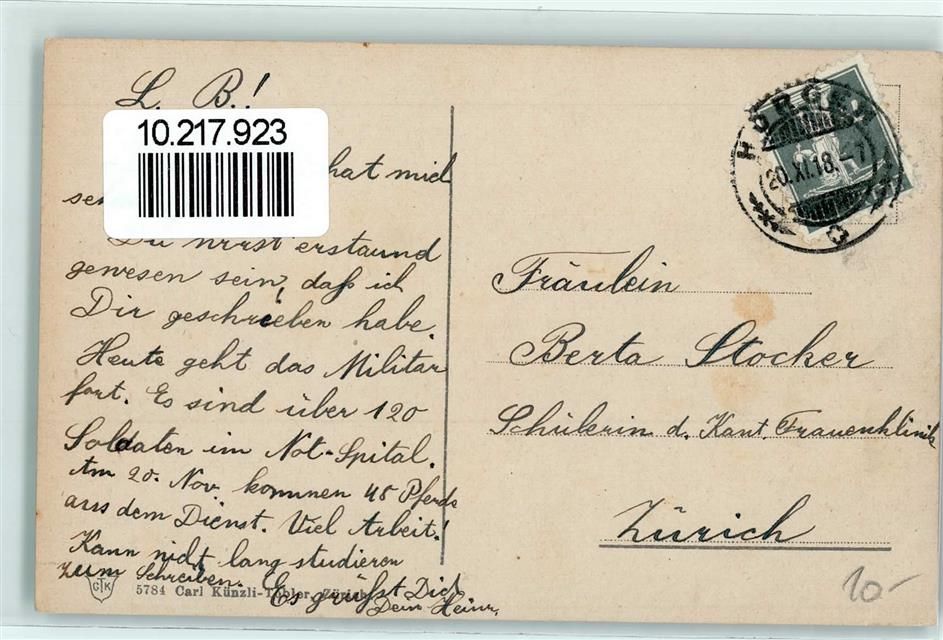 L. B.!
10.217.923
hat mich
Du wirst erstaund
gewesen sein, daß ich
Dir geschrieben habe.
Heute geht das Militär
fort. Es sind über 120
Soldaten im Not-Spital.
Am 20. Nov. kommen 45 Pferde
aus dem Dienst. Viel Arbeit!
Kann nicht lang studieren
zum Schreiben. Es grüßt Dich
Dein Heinr.
CTK
5784 Carl Künzli-Tobler, Zürich
HORGEN
20.XI.18.-7
Fräulein
Berta Stocker
Schülerin d. Kant. Frauenklinik
Zürich
10-